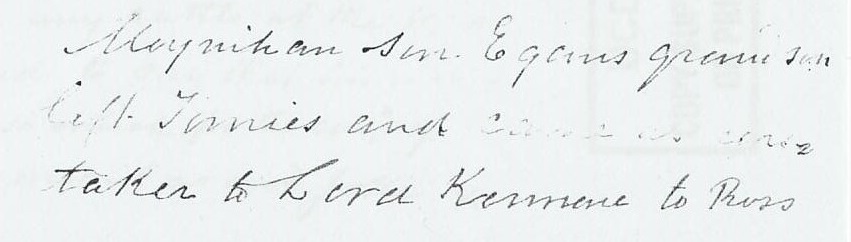 Moynihan son. Egans grandson
left Tomies and came as care
taker to Lord Kenmare to Ross